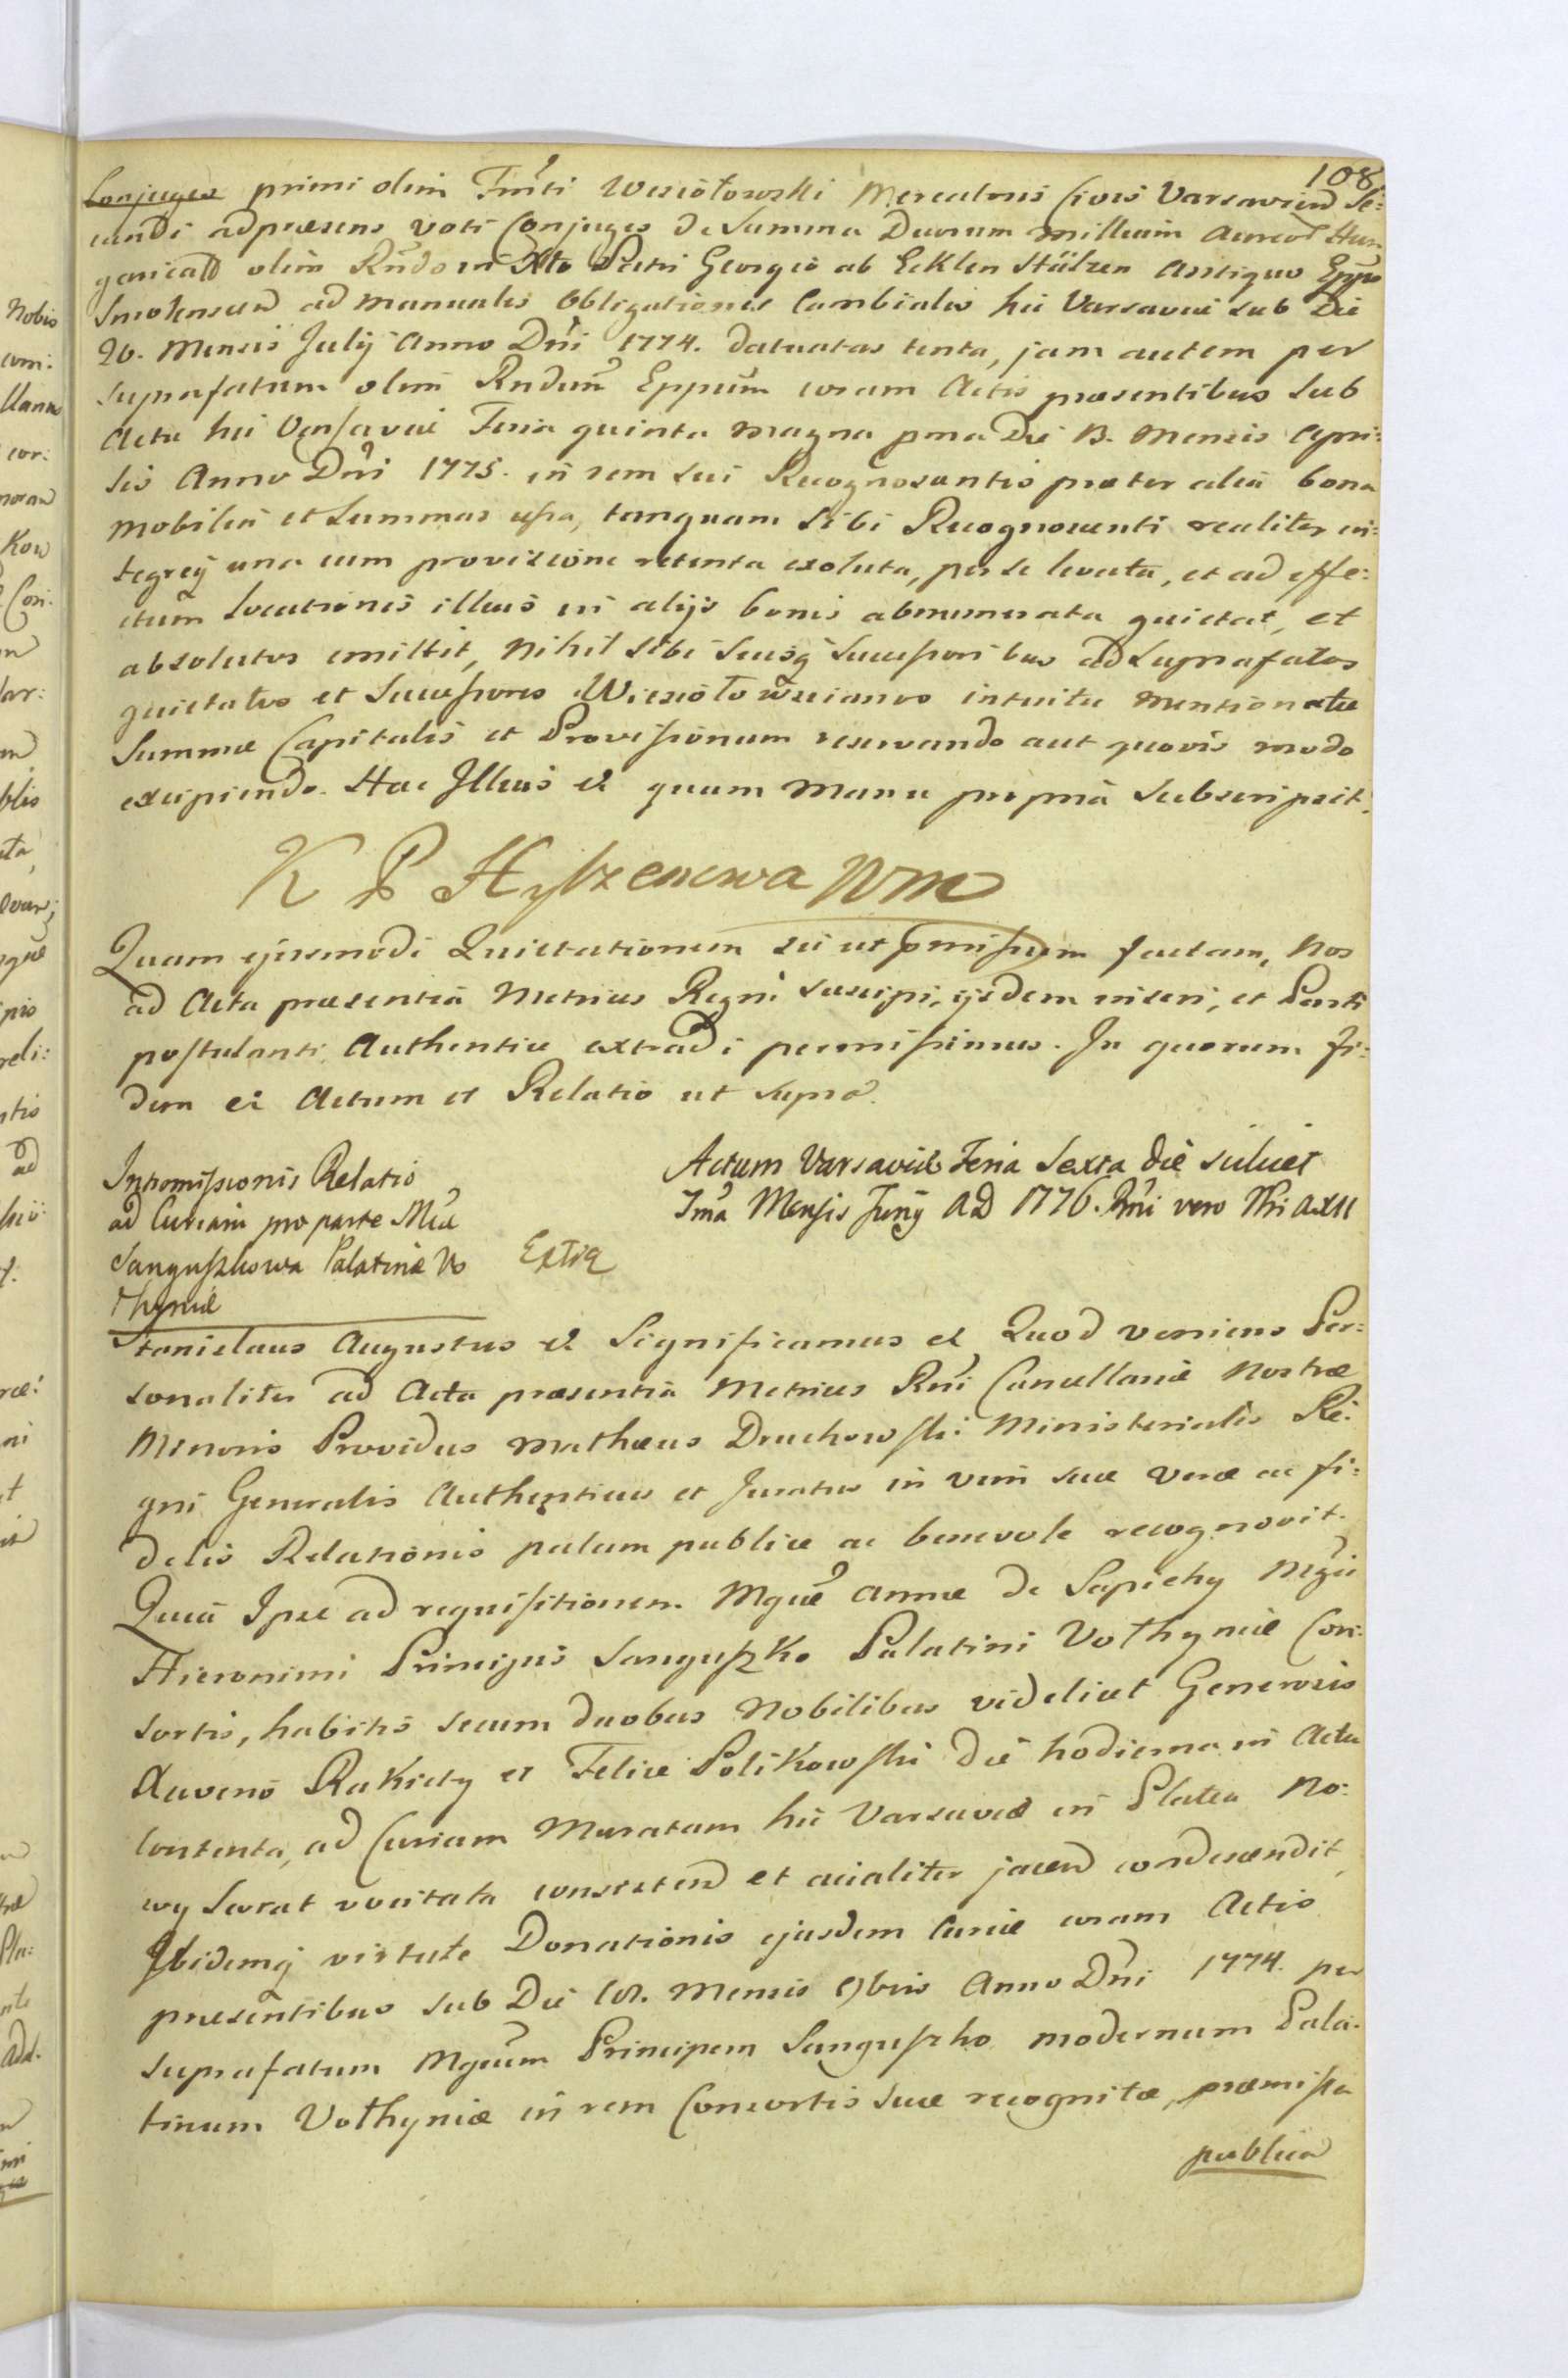 108
Conjuges primi olim Fmti Wesiołowski Mercatoris Civis Varsavien Se:
cundi adpraesens voti Conjuges de Summa Duorum millium Aureor Hun
garicalD olim Rndo in Xto Patri Georgio ab Ecklen Hülzen Antiquo Eppo
Smolenscen ad manuales Obligationes Cambiales hic Varsaviae sub Die
26. Mensis Julij Anno Dni 1774. datuatas tenta, jam autem per
suprafatum olim Rndum Eppum coram Actis praesentibus sub
Actu hic Varsaviae Feria quinta magna pma Die 13. Mensis Apri:
lis Anno Dni 1775. in rem sui Recognoscentis praeter alia bona
mobilia et Summas cessa, tanquam sibi Recognoscenti realiter in:
tegre una cum provisione retenta exoluta, per se levata, et ad effe:
ctum Locationis illius in alijs bonis abnumerata quietat, et
absolutos emittit, Nihil sibi Suisq Successoribus ad Suprafatos
quietatos et Successores Wiesiołowscianos intuitu mentionatae
Summae Capitalis et Provisionum reservando aut quovis modo
excipiendo. Hac Illius et quam Manu propria Subscripsit.
K P Hylzenowa Wm
Quam ejusmodi Quietationem sic ut pmissum factam, Nos
ad Acta praesentia Metrices Regni suscipi, ijsdem inseri, et Parti
postulanti Authentice extradi permisimus. In quorum fi:
dem et Actum et Relatio ut supra.
Intromissionis Relatio
ad Curiam pro parte Mcae
Sanguszkowa Palatinae Vo
lhyniae
Extra
Actum Varsaviae Feria Sexta die scilicet
Ima Mensis Junij AD 1776. Rni vero Nri AXII
Stanislaus Augustus et Significamus et Quod veniens Per:
sonaliter ad Acta praesentia Metrices Rni Cancellariae Nostrae
Minoris Providus Mathaeus Druchowski Ministerialis Re:
gni Generalis Authenticus et Juratus in vim suae verae ac fi:
delis Relationis palam publice ac benevole recognovit.
Quia Ipse ad requisitionem Mgcae Annae de Sapiehy Mgci
Hieronimi Principis Sanguszko Palatini Volhyniae Con:
sortis, habitis secum duobus Nobilibus videlicet Generosis
Xaverio Rakiety et Felice Polikowski die hodierna in Actu
Contenta, ad Curiam Muratam hic Varsaviae in Platea No:
wy Swiat vocitata consisten et acialiter jacen condescendit,
Ibidemq virtute Donationis ejusdem Curiae coram Actis
praesentibus sub Die 18. Mensis 9bris Anno Dni 1774. per
suprafatum Mgcum Principem Sanguszko modernum Pala:
tinum Volhyniae in rem Consortis suae recognitae, praemissa
publica